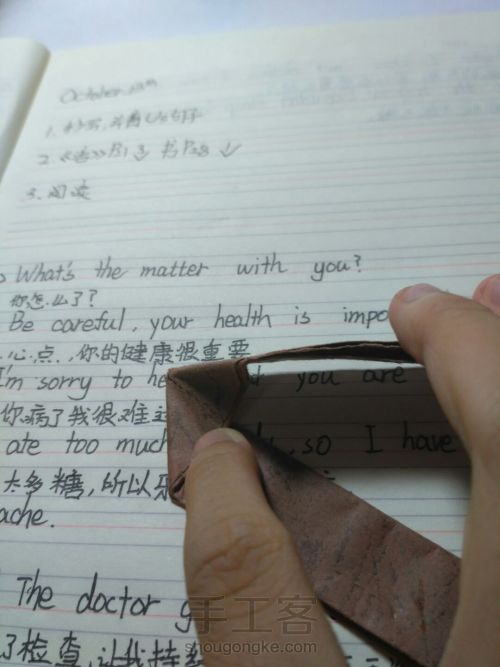 October
1. 抄写, 句子
2. 《 》P13 书P28
3. 阅读
What's the matter with you?
你怎么了?
Be careful, your health is impo
心点,你的健康很重要
I'm sorry to he you are
你病了我很难过
ate too much , so I have
太多糖,所以
ache.
The doctor g
了检查,让我持续
手工客
shougongke.com